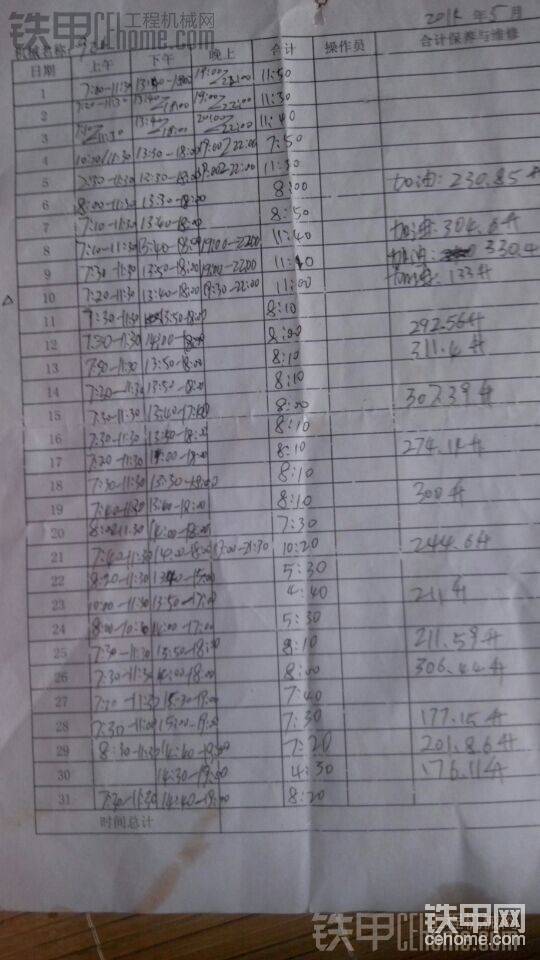 铁甲 工程机械网
CEhome.com
2014年5月
机械名称:
日期 上午 下午 晚上 合计 操作员 合计保养与维修
1 7:00-11:30 19:00 22:00 11:50
2 7:20-11:30 13:40 18:00 19:00 22:00 11:30
3 11:30 13:40 18:00 20:00 22:00 11:40
4 13:30-18:00 19:00 22:00 7:50
5 11:30 13:30-18:00 19:00 22:00 11:30
6 8:00-11:30 13:30-18:00 8:00 加油: 230.85升
7 7:10-11:30 13:40-18:00 8:50
8 7:10-11:30 13:40-18:00 19:00-22:00 11:40 加油: 304.6升
9 7:30-11:30 13:50-18:00 19:00-22:00 11:10 加油: 330.4
10 7:20-11:30 13:40-18:00 19:30-22:00 11:00 加油: 133升
11 7:30-11:30 13:50-18:00 8:10
12 7:30-11:30 14:00-18:00 8:00 292.56升
13 7:50-11:30 13:50-18:00 8:10 311.4升
14 7:30-11:30 13:50-18:00 8:10
15 7:30-11:30 13:40-17:40 8:00 307.39升
16 7:30-11:30 13:50-18:00 8:10
17 7:20-11:30 14:00-18:00 8:10 274.14升
18 7:30-11:30 8:10
19 7:40-11:30 13:40-18:00 8:10 300升
20 8:00-11:30 14:00-18:00 7:30
21 7:40-11:30 14:00-18:00 21:30 10:20 244.6升
22 8:20-11:30 5:30
23 10:00-11:30 13:50-17:00 4:40 211升
24 8:00-10:30 14:00-17:00 5:30
25 7:30-11:30 13:50-18:00 8:10 211.59升
26 7:30-11:30 14:00-18:00 8:00 306.44升
27 11:30 15:30-19:00 7:40
28 7:30-11:00 15:00-19:00 7:30 177.15升
29 8:30-11:30 14:40-19:00 7:20 201.86升
30 14:30-19:00 4:30 176.11升
31 7:30-11:30 14:40-19:00 8:20
时间总计
铁甲 CEhome.com
铁甲网
cehome.com